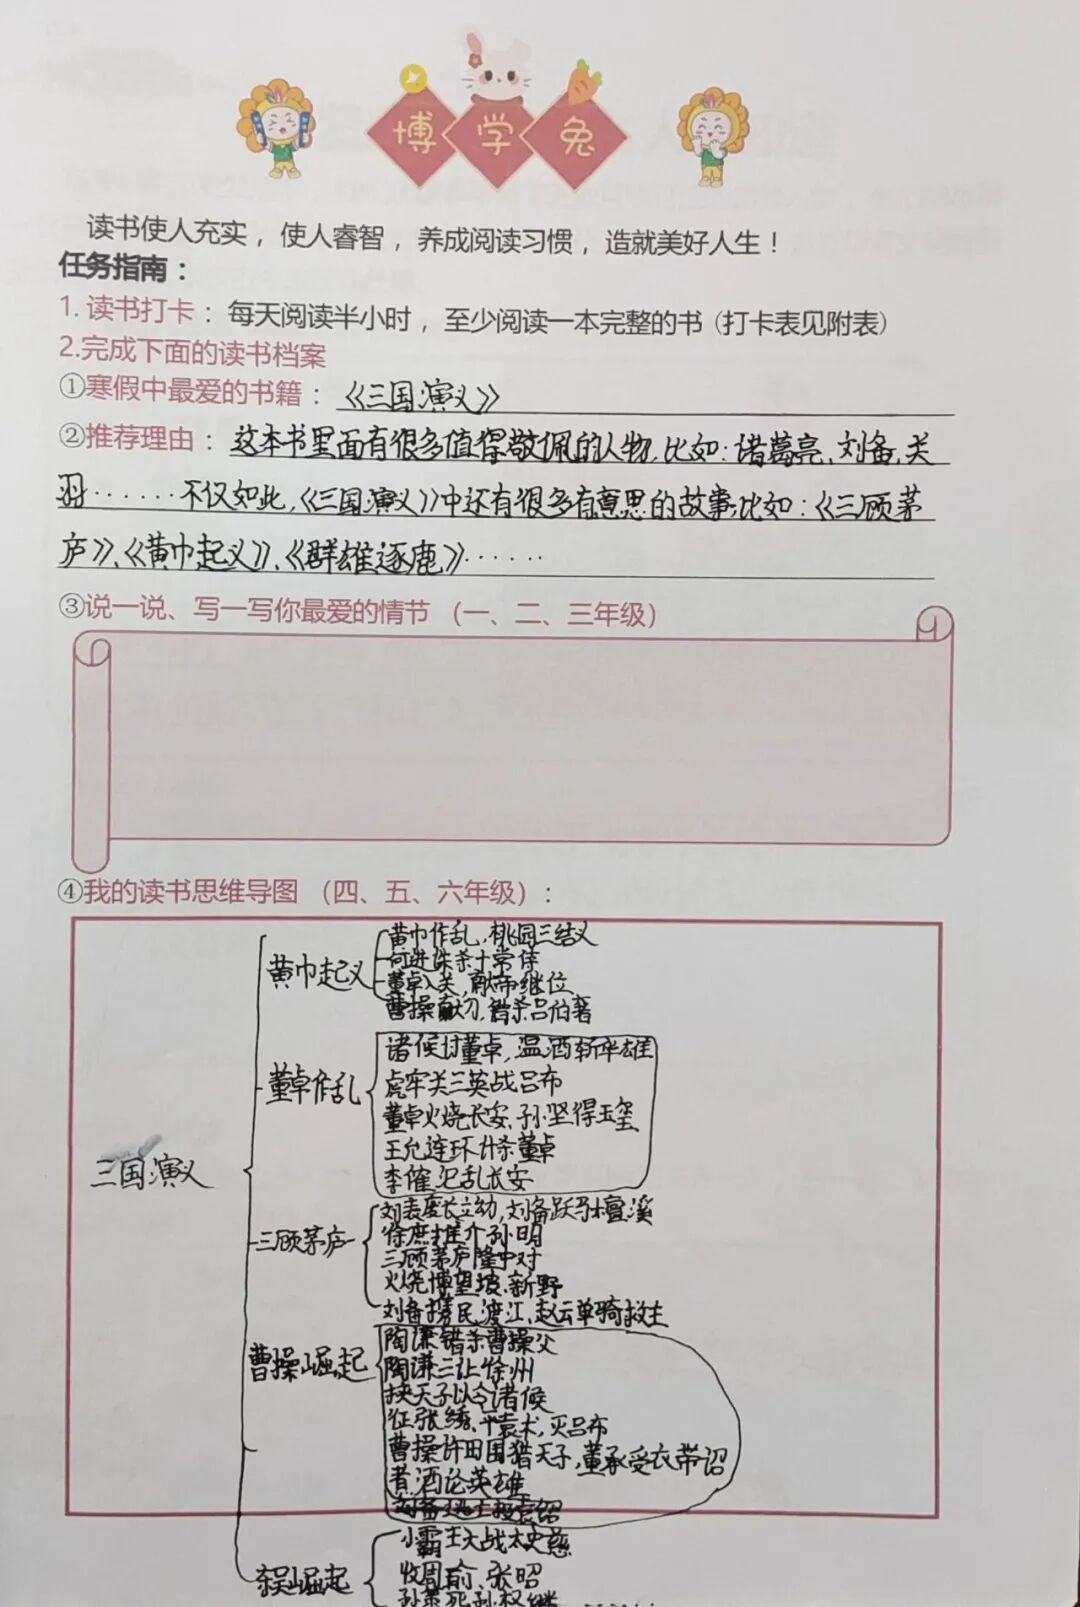 博学兔
读书使人充实，使人睿智，养成阅读习惯，造就美好人生！
任务指南：
1.读书打卡：每天阅读半小时，至少阅读一本完整的书（打卡表见附表）
2.完成下面的读书档案
①寒假中最爱的书籍：《三国演义》
②推荐理由：这本书里面有很多值得敬佩的人物，比如：诸葛亮、刘备、关
羽……不仅如此，《三国演义》中还有很多有意思的故事，比如：《三顾茅
庐》、《黄巾起义》、《群雄逐鹿》……
③说一说、写一写你最爱的情节（一、二、三年级）
④我的读书思维导图（四、五、六年级）：
三国演义
黄巾起义
黄巾作乱，桃园三结义
何进诛杀十常侍
董卓入关，献帝继位
曹操献刀，错杀吕伯奢
董卓作乱
诸候讨董卓，温酒斩华雄
虎牢关三英战吕布
董卓火烧长安、孙坚得玉玺
王允连环计杀董卓
李傕犯乱长安
三顾茅庐
刘表废长立幼，刘备跃马檀溪
徐庶推介孔明
三顾茅庐隆中对
火烧博望坡、新野
刘备携民渡江、赵云单骑救主
曹操崛起
陶谦错杀曹操父
陶谦三让徐州
挟天子以令诸候
征张绣、平袁术，灭吕布
曹操许田围猎天子，董承受衣带诏
煮酒论英雄
刘备逃走投袁绍
东吴崛起
小霸王大战太史慈
收周瑜、张昭
孙策死孙权继